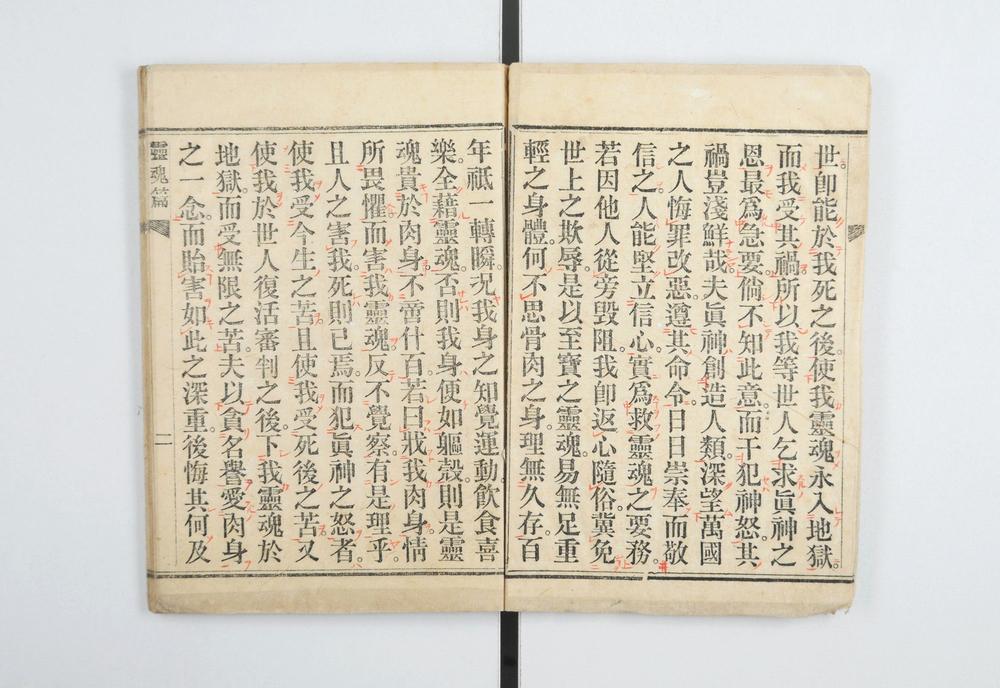 世。卽能於我死之後。使我靈魂永入地獄。
而我受其禍。所以我等世人乞求眞神之
恩。最爲急要。倘不知此意。而干犯神怒。其
禍豈淺鮮哉。夫眞神創造人類。深望萬國
之人悔罪改惡。遵其命令。日日崇奉而敬
信之。人能堅立信心。實爲救靈魂之要務。
若因他人從旁毀阻。我卽返心隨俗。冀免
世上之欺辱。是以至寶之靈魂。易無足重
輕之身體。何不思骨肉之身。理無久存。百
年祇一轉瞬。况我身之知覺運動。飮食喜
樂。全藉靈魂。否則我身便如軀殼。則是靈
魂貴於肉身。不啻什百。若曰戕我肉身。情
所畏懼。而害我靈魂。反不覺察。有是理乎。
且人之害我。死則已焉。而犯眞神之怒者。
使我受今生之苦。且使我受死後之苦。又
使我於世人復活審判之後。下我靈魂於
地獄。而受無限之苦。夫以貪名譽愛肉身
之一念。而貽害如此之深重。後悔其何及
靈魂篇
二